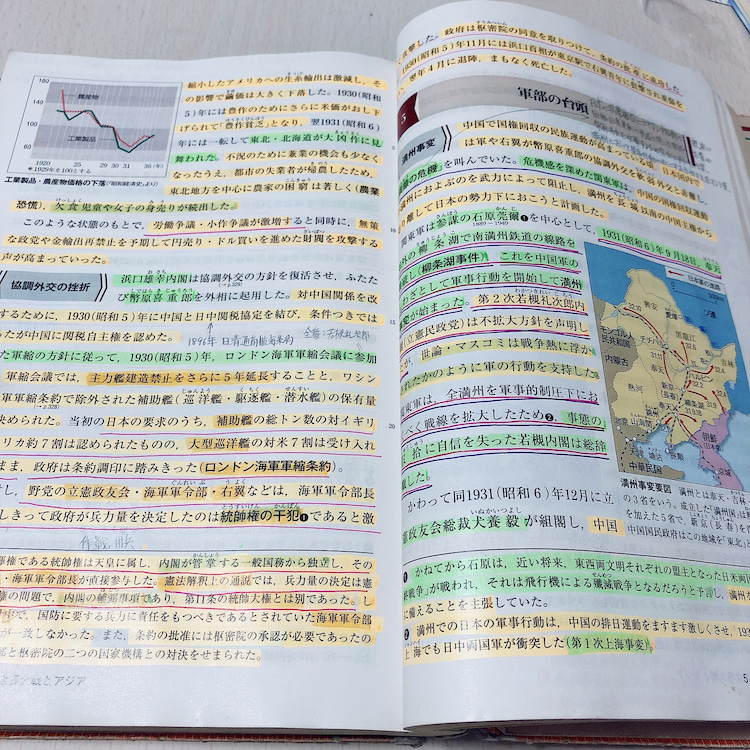 180
140
100
60
農産物
工業製品
1920
25
29
30
31
36(年)
※1929年を100とする
工業製品・農産物価格の下落(『昭和経済史』より)
縮小したアメリカへの生糸輸出は激減し、そ
の影響で繭価は大きく下落した。1930(昭和
5)年には豊作のためにさらに米価がおし下
げられて「豊作貧乏」となり、翌1931(昭和6)
年には一転して東北・北海道が大凶作に見
舞われた。不況のために兼業の機会も少なく
なったうえ、都市の失業者が帰農したため、
東北地方を中心に農家の困窮は著しく(農業
恐慌)、欠食児童や女子の身売りが続出した。
このような状態のもとで、労働争議・小作争議が激増すると同時に、無策
な政党や金輸出再禁止を予期して円売り・ドル買いを進めた財閥を攻撃する
声が高まっていった。
協調外交の挫折
浜口雄幸内閣は協調外交の方針を復活させ、ふたた
び幣原喜重郎を外相に起用した。対中国関係を改
するために、1930(昭和5)年に中国と日中関税協定を結び、条件つきでは
ったが中国に関税自主権を認めた。
た軍縮の方針に従って、1930(昭和5)年、ロンドン海軍軍縮会議に参加
軍縮会議では、主力艦建造禁止をさらに5年延長することと、ワシン
海軍軍縮条約で除外された補助艦(巡洋艦・駆逐艦・潜水艦)の保有量
決められた。当初の日本の要求のうち、補助艦の総トン数の対イギリ
リカ約7割は認められたものの、大型巡洋艦の対米7割は受け入れ
まま、政府は条約調印に踏みきった(ロンドン海軍軍縮条約)。
し、野党の立憲政友会・海軍軍令部・右翼などは、海軍軍令部長
しきって政府が兵力量を決定したのは統帥権の干犯❶であると激
軍権である統帥権は天皇に属し、内閣が管掌する一般国務から独立し、その
・海軍軍令部長が直接参与した。憲法解釈上の通説では、兵力量の決定は憲
権の問題で、内閣の輔弼事項であり、第11条の統帥大権とは別であった。し
中で、国防に要する兵力に責任をもつべきであるとされていた海軍軍令部
が一致しなかった。また、条約の批准には枢密院の承認が必要であったの
部と枢密院の二つの国家機構との対決をせまられた。
とアジア
攻撃した。政府は枢密院の同意を取りつけて、条約の批准に成功した
が、1930(昭和5)年11月には浜口首相が東京駅で右翼青年に狙撃されて重傷を
、翌年4月に退陣、まもなく死亡した。
5
軍部の台頭
満州事変
中国で国権回収の民族運動が高まっている頃、日本国内で
は軍や右翼が幣原喜重郎の協調外交を軟弱外交と非難し、
の危機」を叫んでいた。危機感を深めた関東軍は、中国の国権回収運動
が満州におよぶのを武力によって阻止し、満州を長城以南の中国主権から
離して日本の勢力下におこうと計画した。
関東軍は参謀の石原莞爾❶を中心として、1931(昭和6)年9月18日、奉天
外の柳条湖で南満州鉄道の線路を
し(柳条湖事件)、これを中国軍の
わざとして軍事行動を開始して満州
変が始まった。第2次若槻礼次郎内
(立憲民政党)は不拡大方針を声明し
が、世論・マスコミは戦争熱に浮か
れたかのように軍の行動を支持した。
東軍は、全満州を軍事的制圧下にお
べく戦線を拡大したため❷、事態の
拾に自信を失った若槻内閣は総辞
した。
かわって同1931(昭和6)年12月に立
憲政友会総裁犬養毅が組閣し、中国
日本軍の進路
興安
黒龍江
吉林
ハルビン
内蒙古
熱河
モンゴル人
民共和国
山海関
天津
中華民国
朝鮮
(日本領)
京城
満州事変要図
❶ かねてから石原は、近い将来、東西両文明それぞれの盟主となった日米両国
終戦争」が戦われ、それは飛行機による殲滅戦争となるだろうと予言し、
に備えることを主張していた。
❷ 満州での日本の軍事行動は、中国の排日運動をますます激しくさせ、193
上海でも日中両国軍が衝突した(第1次上海事変)。